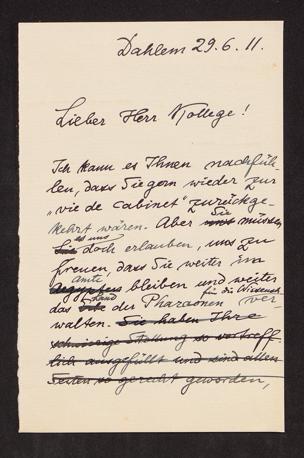 Dahlem 29.6.11.
Lieber Herr Kollege!
Ich kann es Ihnen nachfüh-
len, dass Sie gern wieder zur
„vie de cabinet" zurückge-
kehrt wären. Aber uns Sie müssen
Sie es uns doch erlauben, uns zu
freuen, dass Sie weiter im
Amte bleiben und weiter
das Land der Pharaonen für die Wissensch. ver-
walten. Sie haben Ihre
schwierige Stellung so vortreff-
lich ausgefüllt und sind allen
Seiten so gerecht geworden,